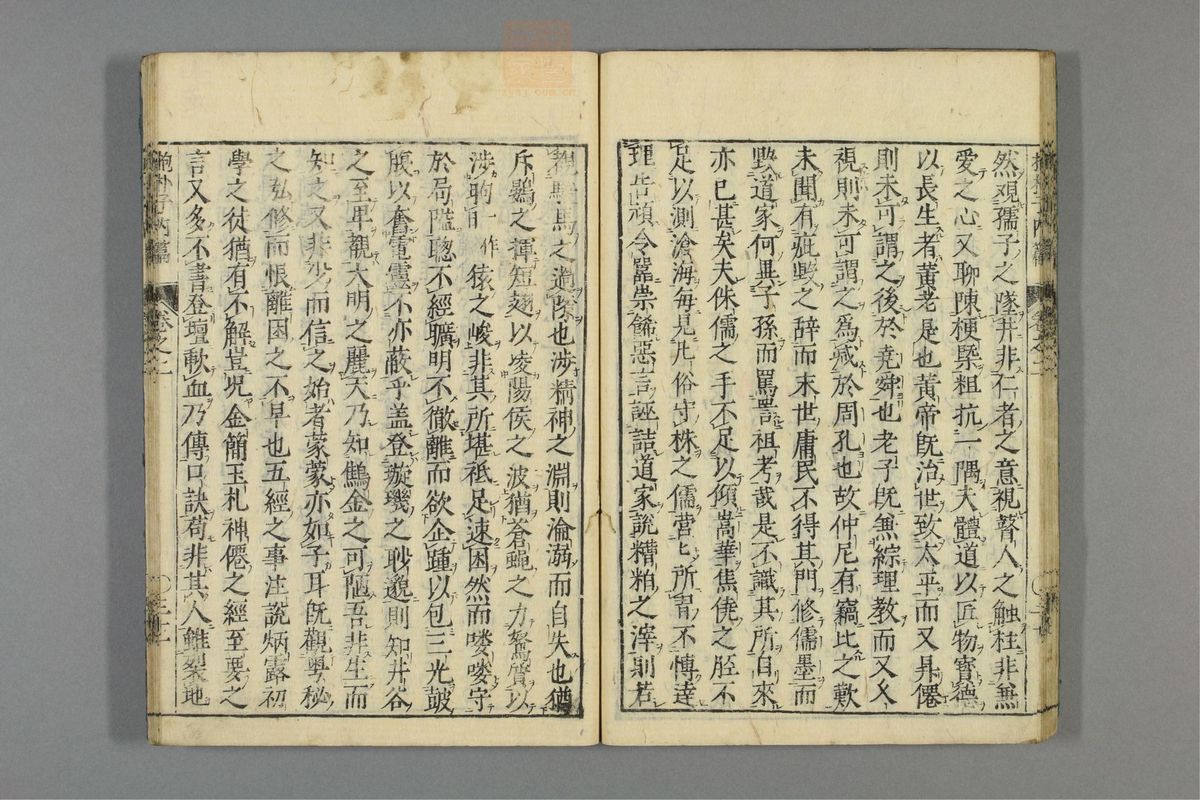 然觀孺子之墜井非仁者之意視瞽人之触柱非無
愛之心又聊陳梗槩粗抗一隅夫體道以匠物寳德
以長生者黄老是也黄帝既治世致太平而又昇僊
則未可謂之後於堯舜也老子既無綜理教而又久
視則未可謂之爲减於周孔也故仲尼有竊比之歎
未聞有疵毀之辞而末世庸民不得其門修儒墨而
毀道家何異子孫而罵詈祖考哉是不識其所自來
亦已甚矣夫侏儒之手不足以傾嵩華焦僥之脛不
足以測滄海每見凡俗守株之儒營々所習不博達
理告頑令嚚崇餙惡言誣詰道家說糟粕之滓則若
駑馬之過隙也涉精神之淵則淪溺而自失也猶
斥鷃之揮短翅以凌陽侯之波猶蒼蠅之力駑質以
涉昀一作猿之峻非其所堪祇足速困然而嘍嘍守
於局隘聦不經曠明不徹離而欲企踵以包三光鼓
腹以奮雷靈不亦蔽乎盖登璇璣之眇邈則知井谷
之至卑覩大明之麗天乃知鷦金之可陋吾非生而
知之又非少而信之始者蒙蒙亦如子耳既觀奥秘
之弘修而恨離困之不早也五經之事注說炳露初
學之徒猶有不解豈况金簡玉札神僊之經至要之
言又多不書登壇歃血乃傳口訣苟非其人雖裂地
抱朴子内篇 卷之二